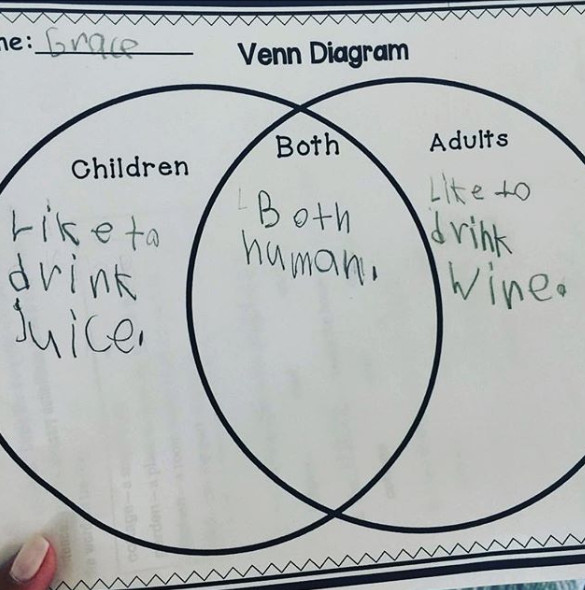 me: Grace
Venn Diagram
Children
Like to
drink
Juice.
Both
Both
human.
Adults
Like to
drink
Wine.